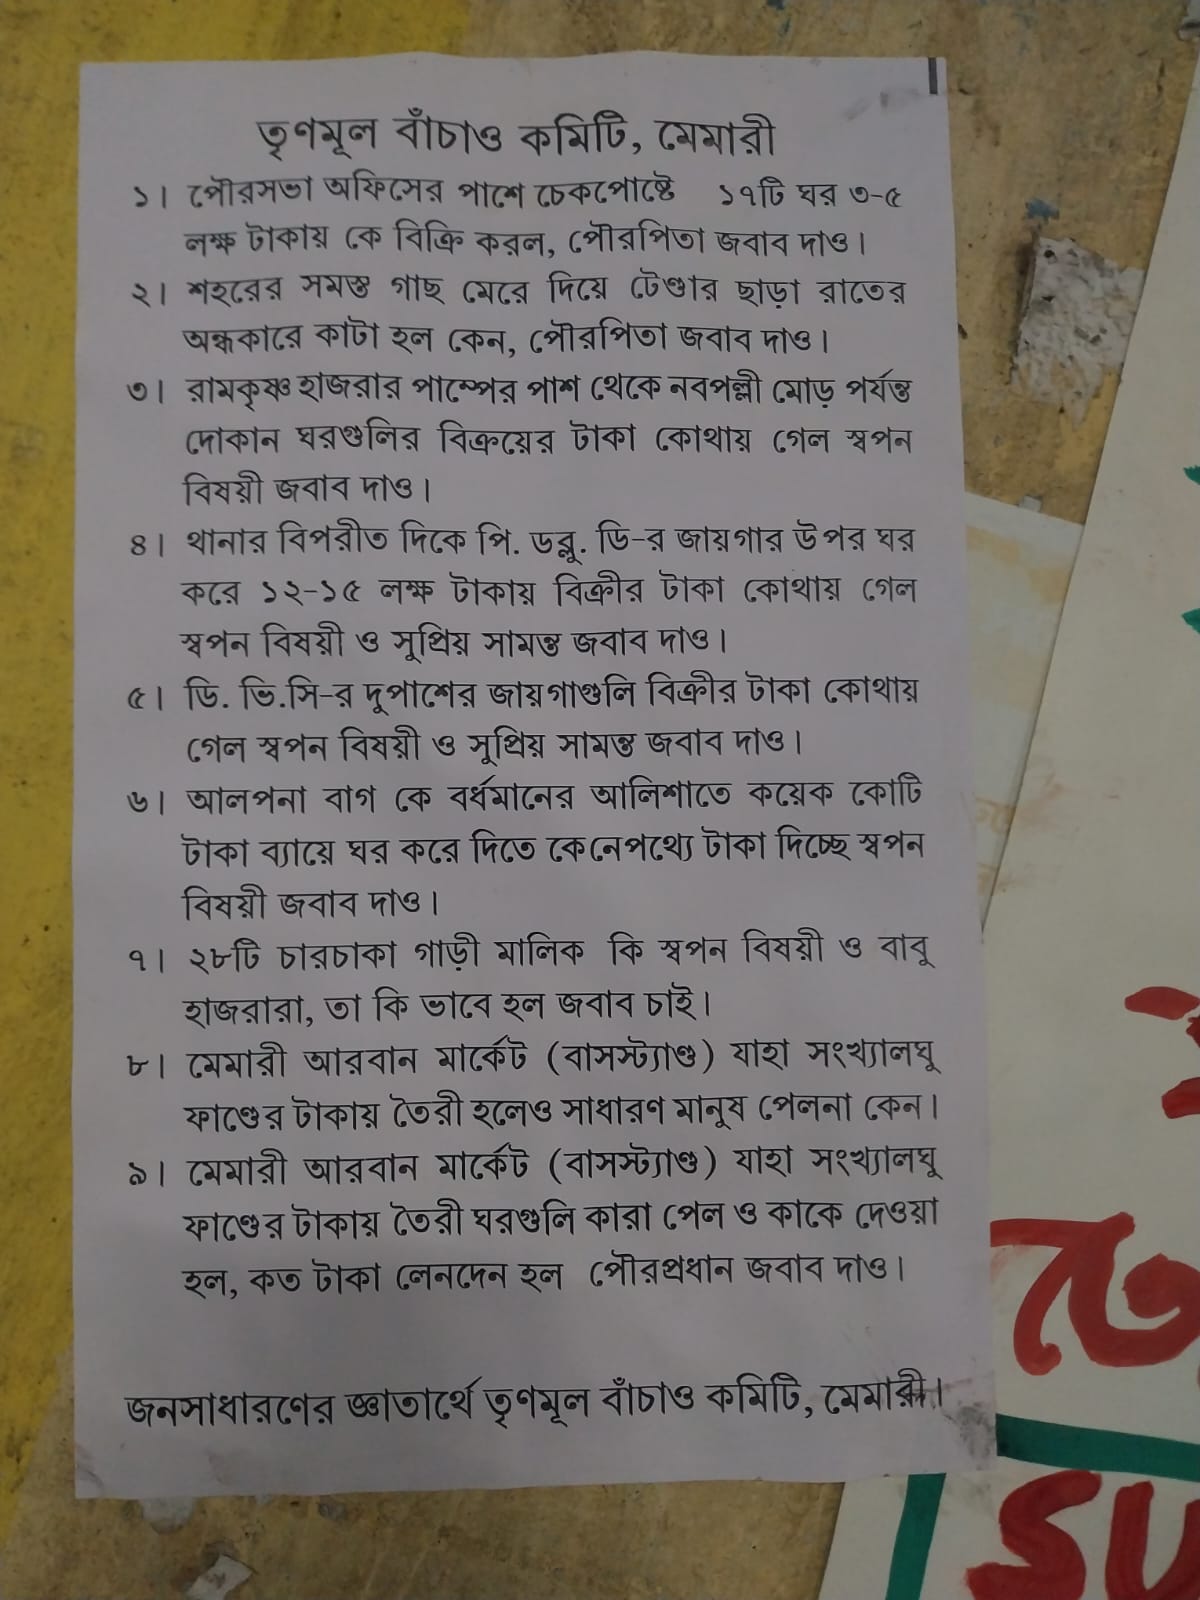 তৃণমূল বাঁচাও কমিটি, মেমারী
১। পৌরসভা অফিসের পাশে চেকপোষ্টে ১৭টি ঘর ৩-৫
লক্ষ টাকায় কে বিক্রি করল, পৌরপিতা জবাব দাও।
২। শহরের সমস্ত গাছ মেরে দিয়ে টেণ্ডার ছাড়া রাতের
অন্ধকারে কাটা হল কেন, পৌরপিতা জবাব দাও।
৩। রামকৃষ্ণ হাজরার পাম্পের পাশ থেকে নবপল্লী মোড় পর্যন্ত
দোকান ঘরগুলির বিক্রয়ের টাকা কোথায় গেল স্বপন
বিষয়ী জবাব দাও।
৪। থানার বিপরীত দিকে পি. ডব্লু. ডি-র জায়গার উপর ঘর
করে ১২-১৫ লক্ষ টাকায় বিক্রীর টাকা কোথায় গেল
স্বপন বিষয়ী ও সুপ্রিয় সামন্ত জবাব দাও।
৫। ডি. ভি.সি-র দুপাশের জায়গাগুলি বিক্রীর টাকা কোথায়
গেল স্বপন বিষয়ী ও সুপ্রিয় সামন্ত জবাব দাও।
৬। আলপনা বাগ কে বর্ধমানের আলিশাতে কয়েক কোটি
টাকা ব্যায়ে ঘর করে দিতে কেনেপথ্যে টাকা দিচ্ছে স্বপন
বিষয়ী জবাব দাও।
৭। ২৮টি চারচাকা গাড়ী মালিক কি স্বপন বিষয়ী ও বাবু
হাজরারা, তা কি ভাবে হল জবাব চাই।
৮। মেমারী আরবান মার্কেট (বাসস্ট্যাণ্ড) যাহা সংখ্যালঘু
ফাণ্ডের টাকায় তৈরী হলেও সাধারণ মানুষ পেলনা কেন।
৯। মেমারী আরবান মার্কেট (বাসস্ট্যাণ্ড) যাহা সংখ্যালঘু
ফাণ্ডের টাকায় তৈরী ঘরগুলি কারা পেল ও কাকে দেওয়া
হল, কত টাকা লেনদেন হল পৌরপ্রধান জবাব দাও।
জনসাধারণের জ্ঞাতার্থে তৃণমূল বাঁচাও কমিটি, মেমারী।